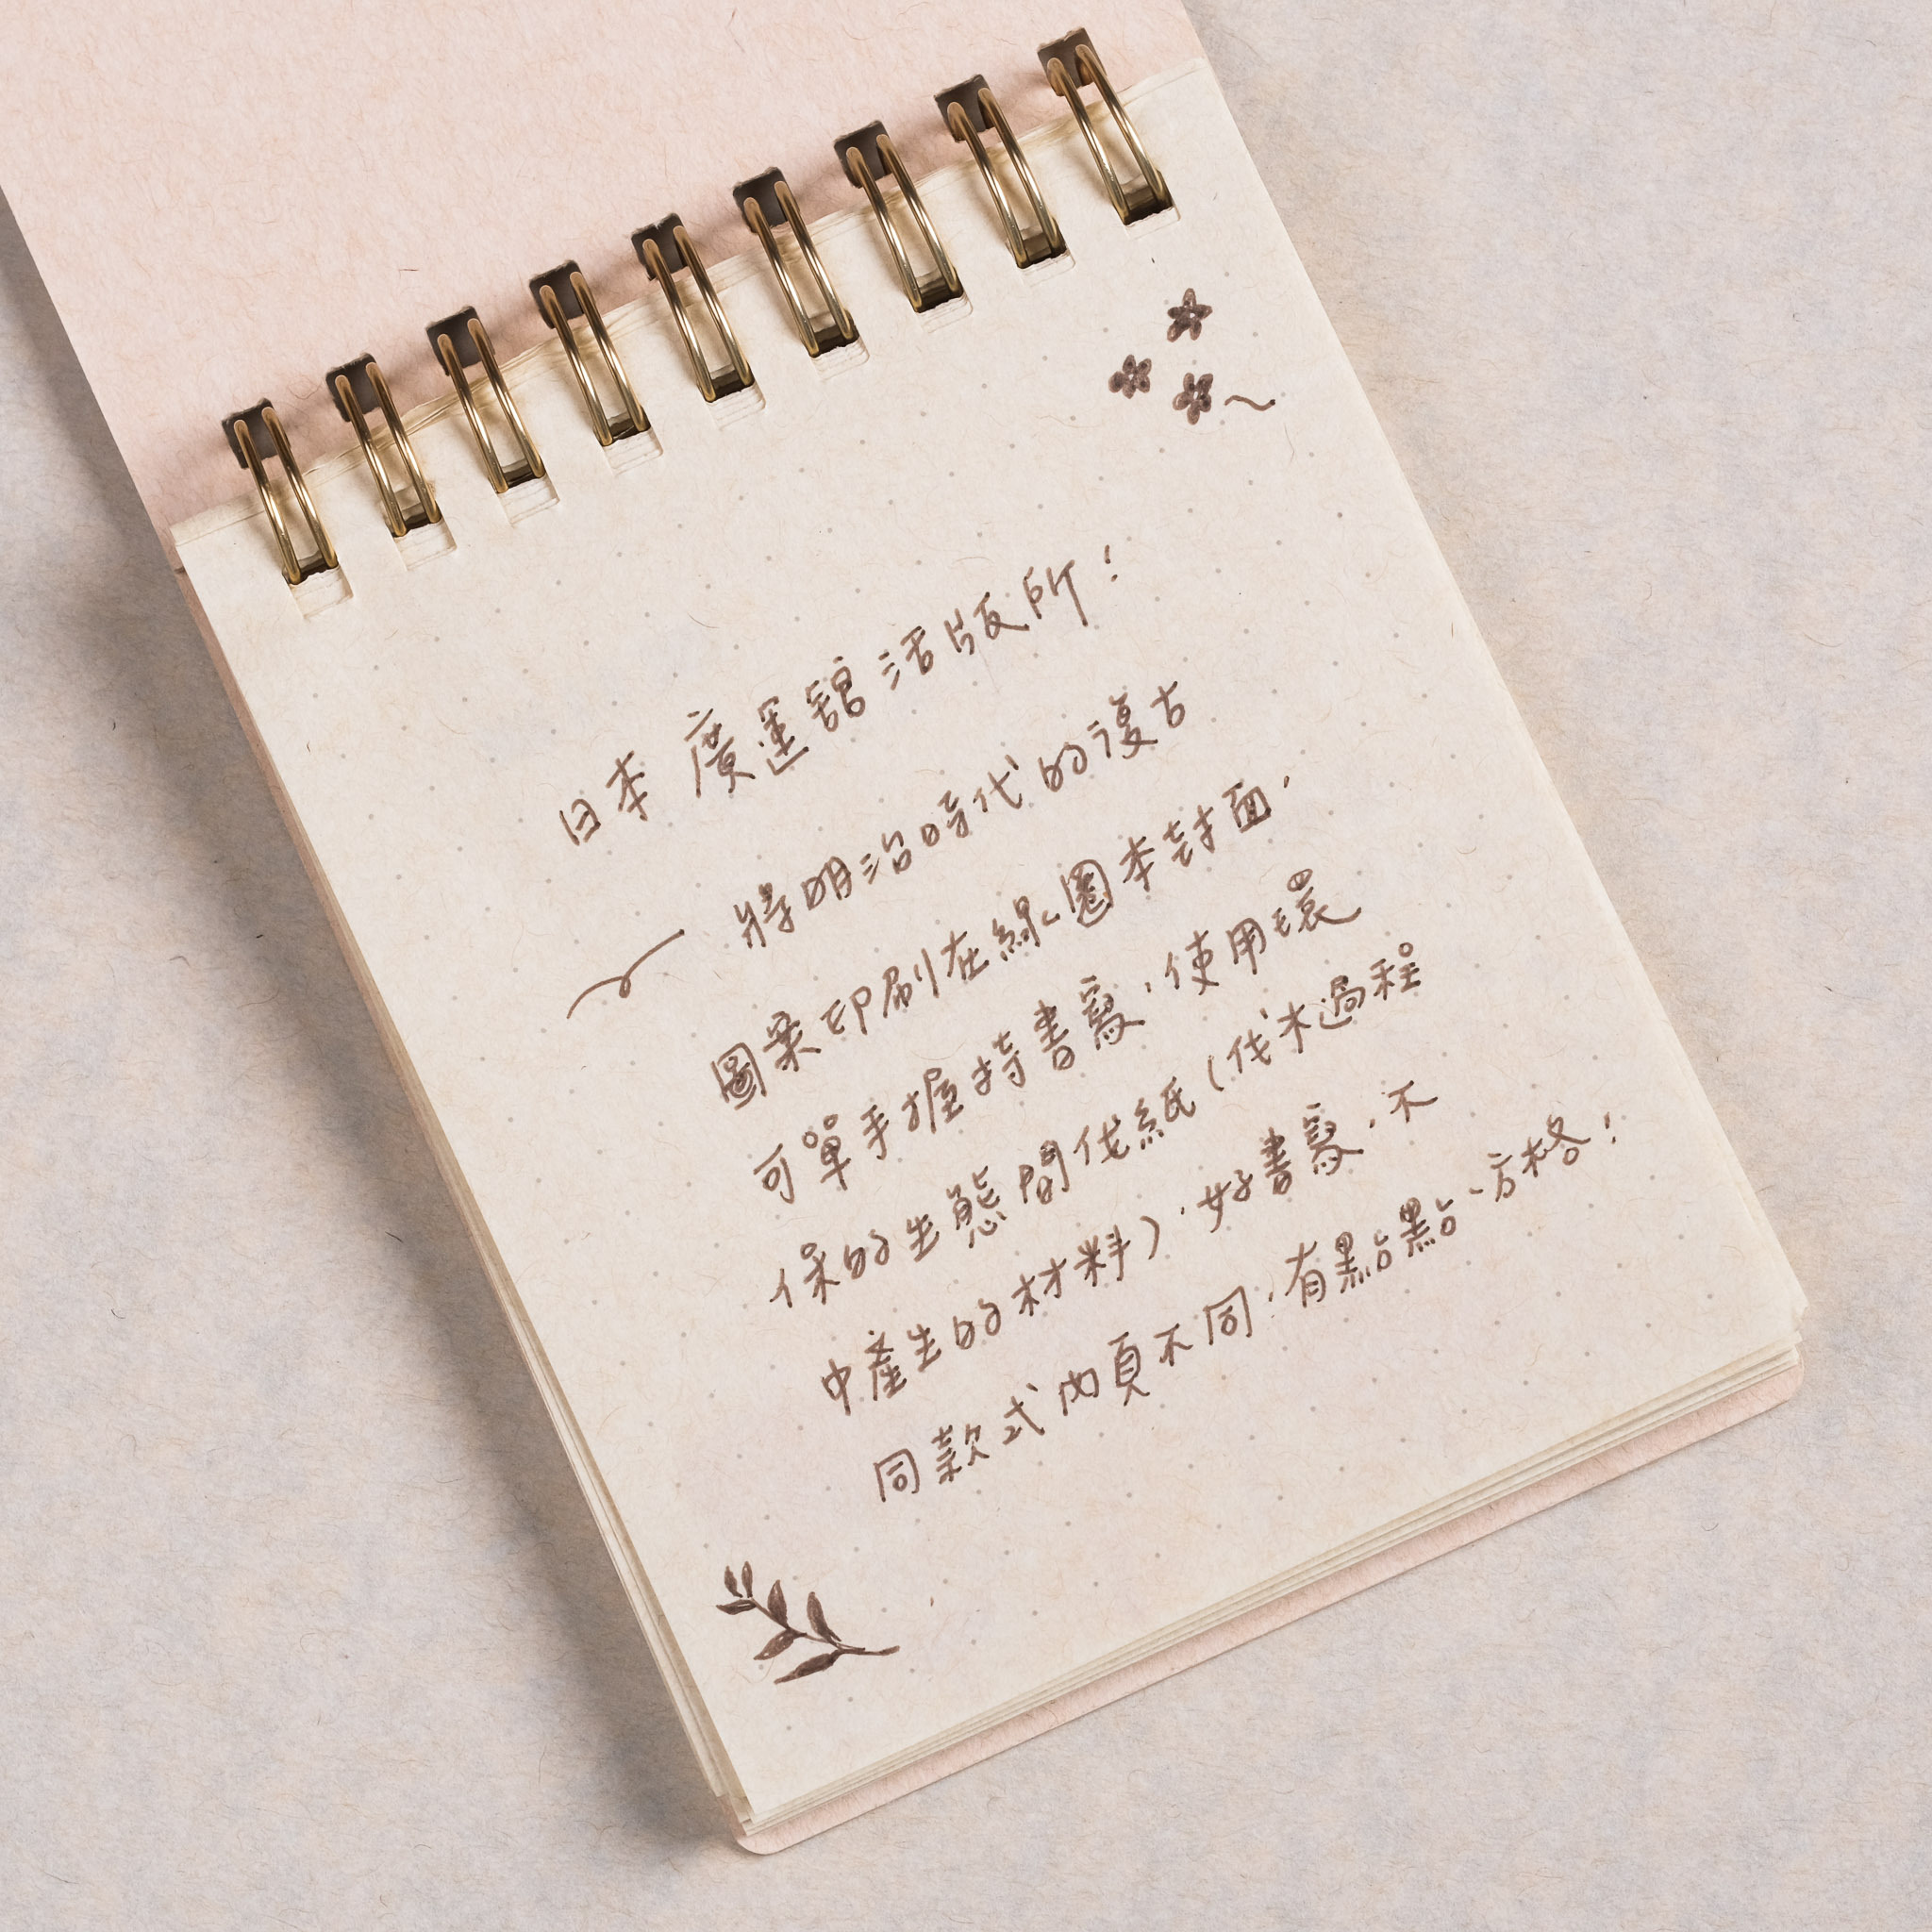 日本 廣運舘活版所！
將明治時代的復古
圖案印刷在線圈本封面，
可單手握持書寫，使用環
保的生態間伐紙（伐木過程
中產生的材料），好書寫，不
同款式內頁不同，有點點、方格！